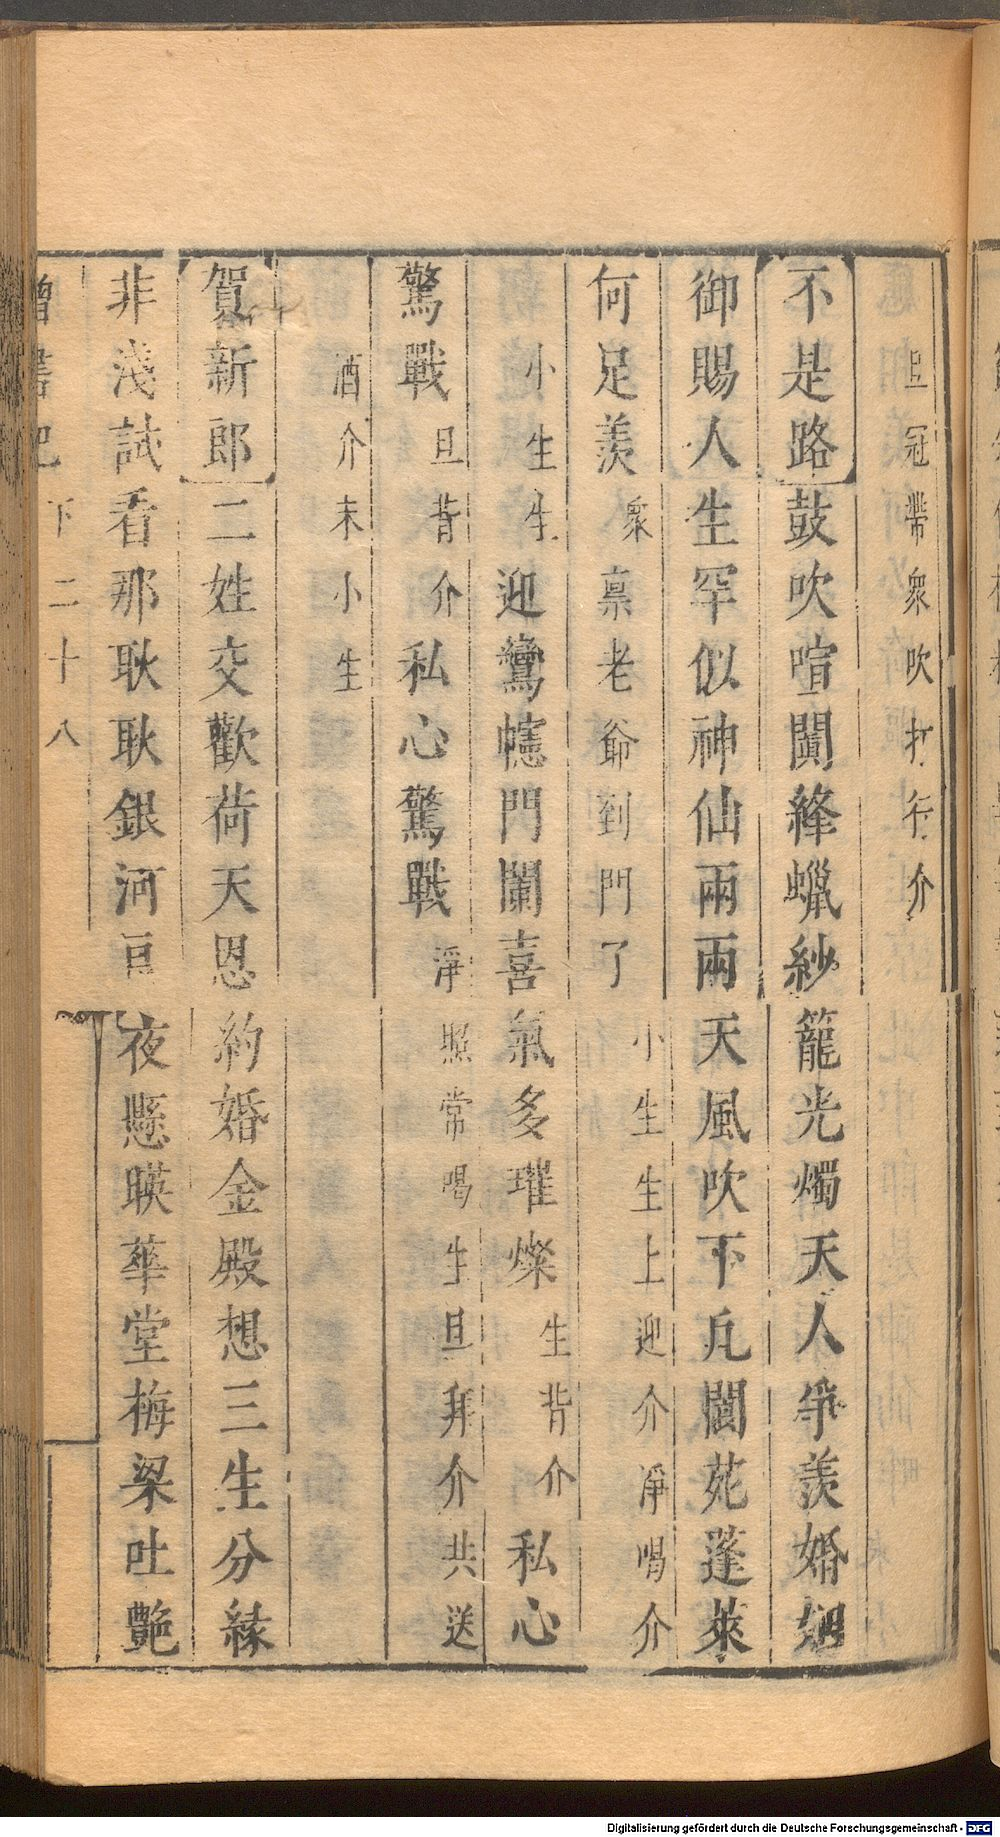 旦冠帶衆吹打行介
不是路鼓吹喧闐絳蠟紗籠光燭天人爭羨婚姻
御賜人生罕似神仙兩兩天風吹下凡閬苑蓬萊
何足羨衆禀老爺到門了小生生上迎介淨喝介
小生生迎鸞幰門闌喜氣多璀燦生背介私心
驚戰旦背介私心驚戰淨照常喝生旦拜介共送
酒介末小生
賀新郎二姓交歡荷天恩約婚金殿想三生分緣
非淺試看那耿耿銀河亘夜懸暎華堂梅梁吐艷
書記 下 二十八
Digitalisierung gefördert durch die Deutsche Forschungsgemeinschaft - DFG